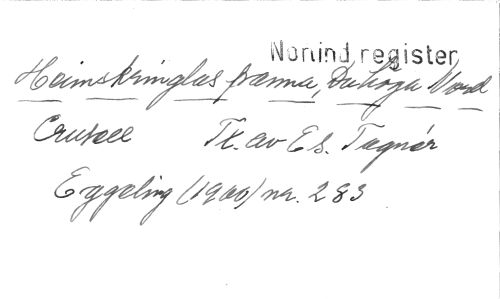 Nonind.register
Heimskringlas panna, Du höga Nord
Crusell Tx. av Es. Tegnér
Eggeling (1900) nr. 283